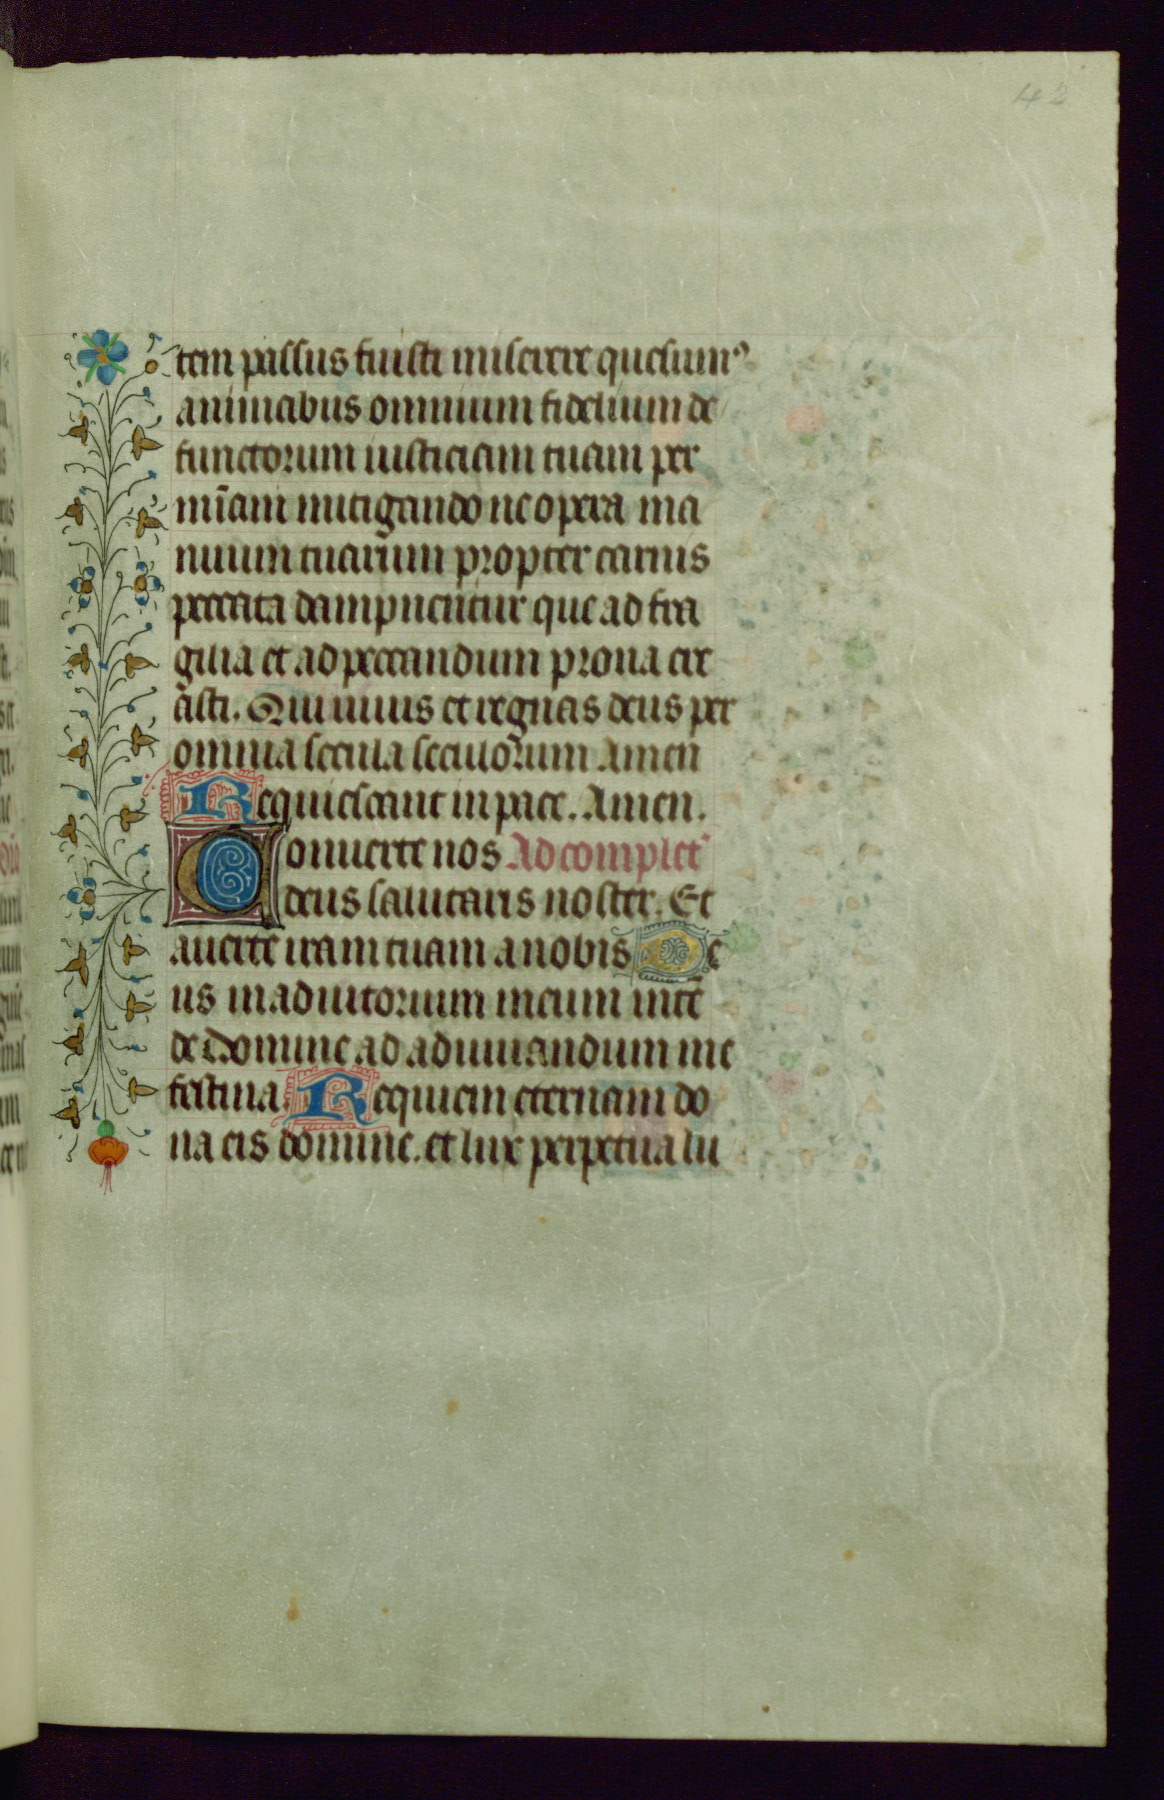 42
tem passus fuisti miserere quesumꝰ
animabus omnium fidelium de
functorum iusticiam tuam per
mīam mitigando ne opera ma
nuum tuarum propter carnis
peccata dampnentur que ad fra
gilia et ad peccandum prona cre
asti. Qui viuis et regnas deus per
omnia secula seculorum Amen
Requiescant in pace. Amen.
Conuerte nos Ad complet
deus salutaris noster. Et
auerte iram tuam a nobis De
us in adiutorium meum intē
de Domine ad adiuuandum me
festina. Requiem eternam do
na eis domine. et lux perpetua lu